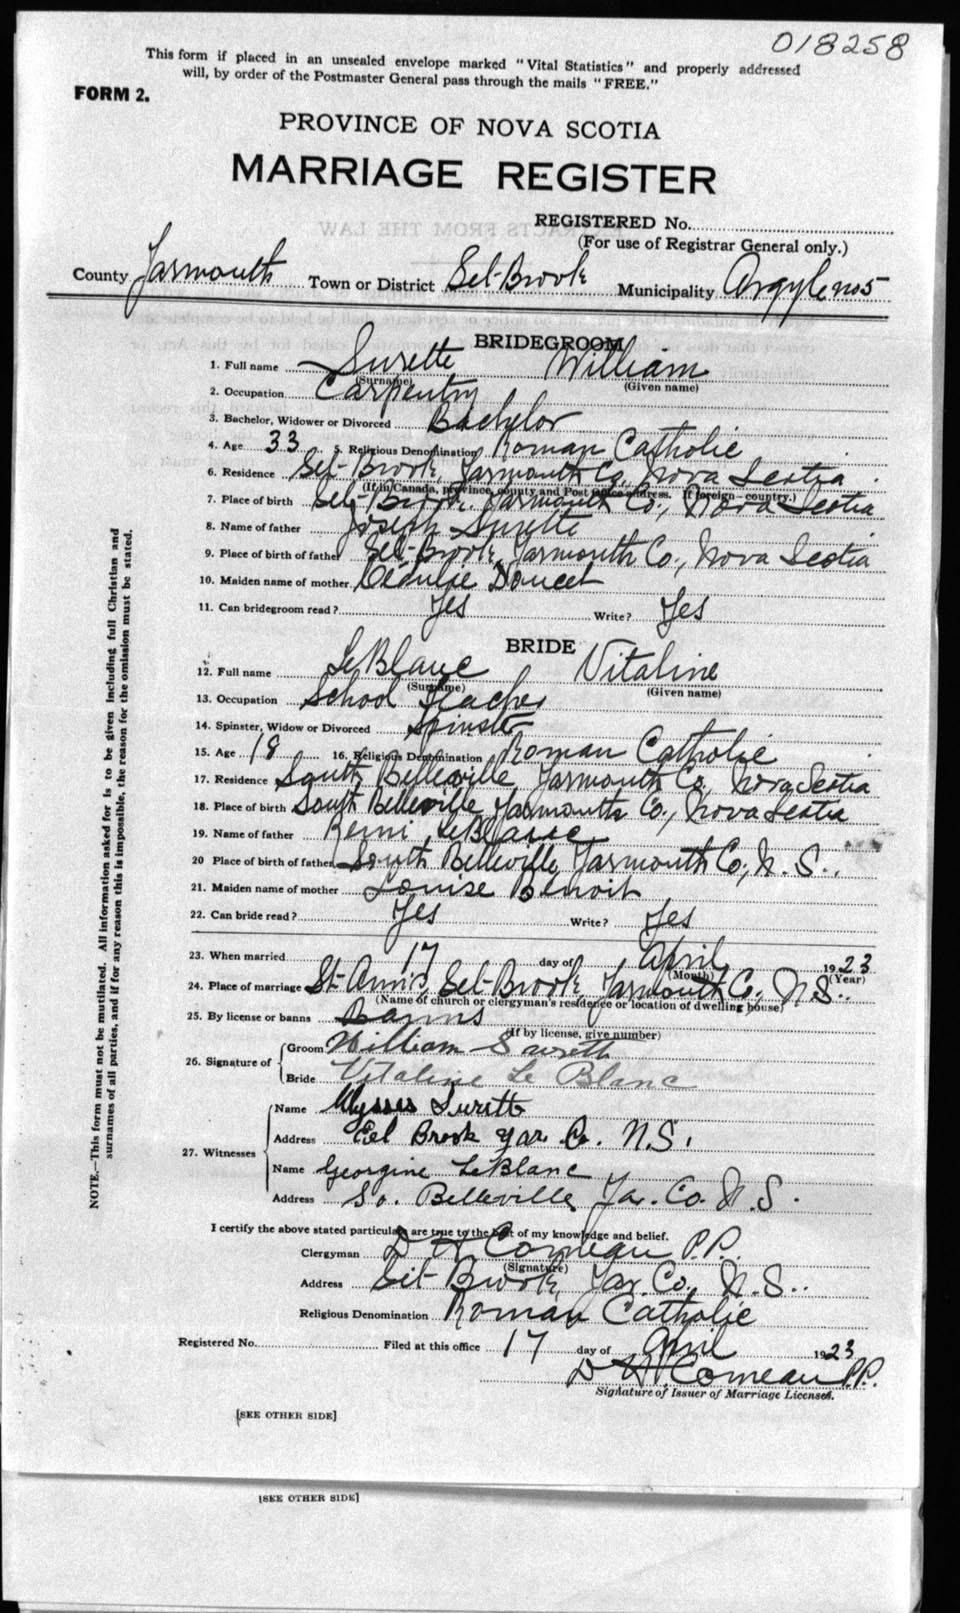 018258
This form if placed in an unsealed envelope marked "Vital Statistics" and properly addressed
will, by order of the Postmaster General pass through the mails "FREE."
FORM 2.
PROVINCE OF NOVA SCOTIA
MARRIAGE REGISTER
EXTRACTS FROM THE LAW
REGISTERED No.
(For use of Registrar General only.)
County Yarmouth Town or District Eel-Brook Municipality Argyle no 5
BRIDEGROOM
1. Full name Surette William
(Surname) (Given name)
2. Occupation Carpentry
3. Bachelor, Widower or Divorced Bachelor
4. Age 33 5. Religious Denomination Roman Catholic
6. Residence Eel-Brook, Yarmouth Co., Nova Scotia
(If in Canada, province, county and Post Office address. If foreign—country.)
7. Place of birth Eel-Brook, Yarmouth Co., Nova Scotia
8. Name of father Joseph Surette
9. Place of birth of father Eel-Brook, Yarmouth Co., Nova Scotia
10. Maiden name of mother Doucet
11. Can bridegroom read? Yes Write? Yes
BRIDE
12. Full name LeBlanc Vitaline
(Surname) (Given name)
13. Occupation School Teacher
14. Spinster, Widow or Divorced Spinster
15. Age 18 16. Religious Denomination Roman Catholic
17. Residence South Belleville, Yarmouth Co., Nova Scotia
18. Place of birth South Belleville, Yarmouth Co., Nova Scotia
19. Name of father Remi LeBlanc
20 Place of birth of father South Belleville, Yarmouth Co., N. S..
21. Maiden name of mother Louise Benoit
22. Can bride read? Yes Write? Yes
23. When married 17 day of April 1923
(Month) (Year)
24. Place of marriage St-Ann's, Eel-Brook, Yarmouth Co., N. S..
(Name of church or clergyman's residence or location of dwelling house)
25. By license or banns Banns
(If by license, give number)
26. Signature of Groom William Surette
Bride Vitaline Le Blanc
27. Witnesses Name Ulysses Surette
Address Eel Brook Yar. Co. N.S.
Name Georgine LeBlanc
Address So. Belleville, Yar. Co. N. S.
I certify the above stated particulars are true to the best of my knowledge and belief.
Clergyman D H Comeau P.P.
(Signature)
Address Eel-Brook, Yar. Co., N. S..
Religious Denomination Roman Catholic
Registered No. Filed at this office 17 day of April 1923
D H. Comeau P.P.
Signature of Issuer of Marriage Licenses.
[SEE OTHER SIDE]
[SEE OTHER SIDE]
NOTE.—This form must not be mutilated. All information asked for is to be given including full Christian and
surnames of all parties, and if for any reason this is impossible, the reason for the omission must be stated.